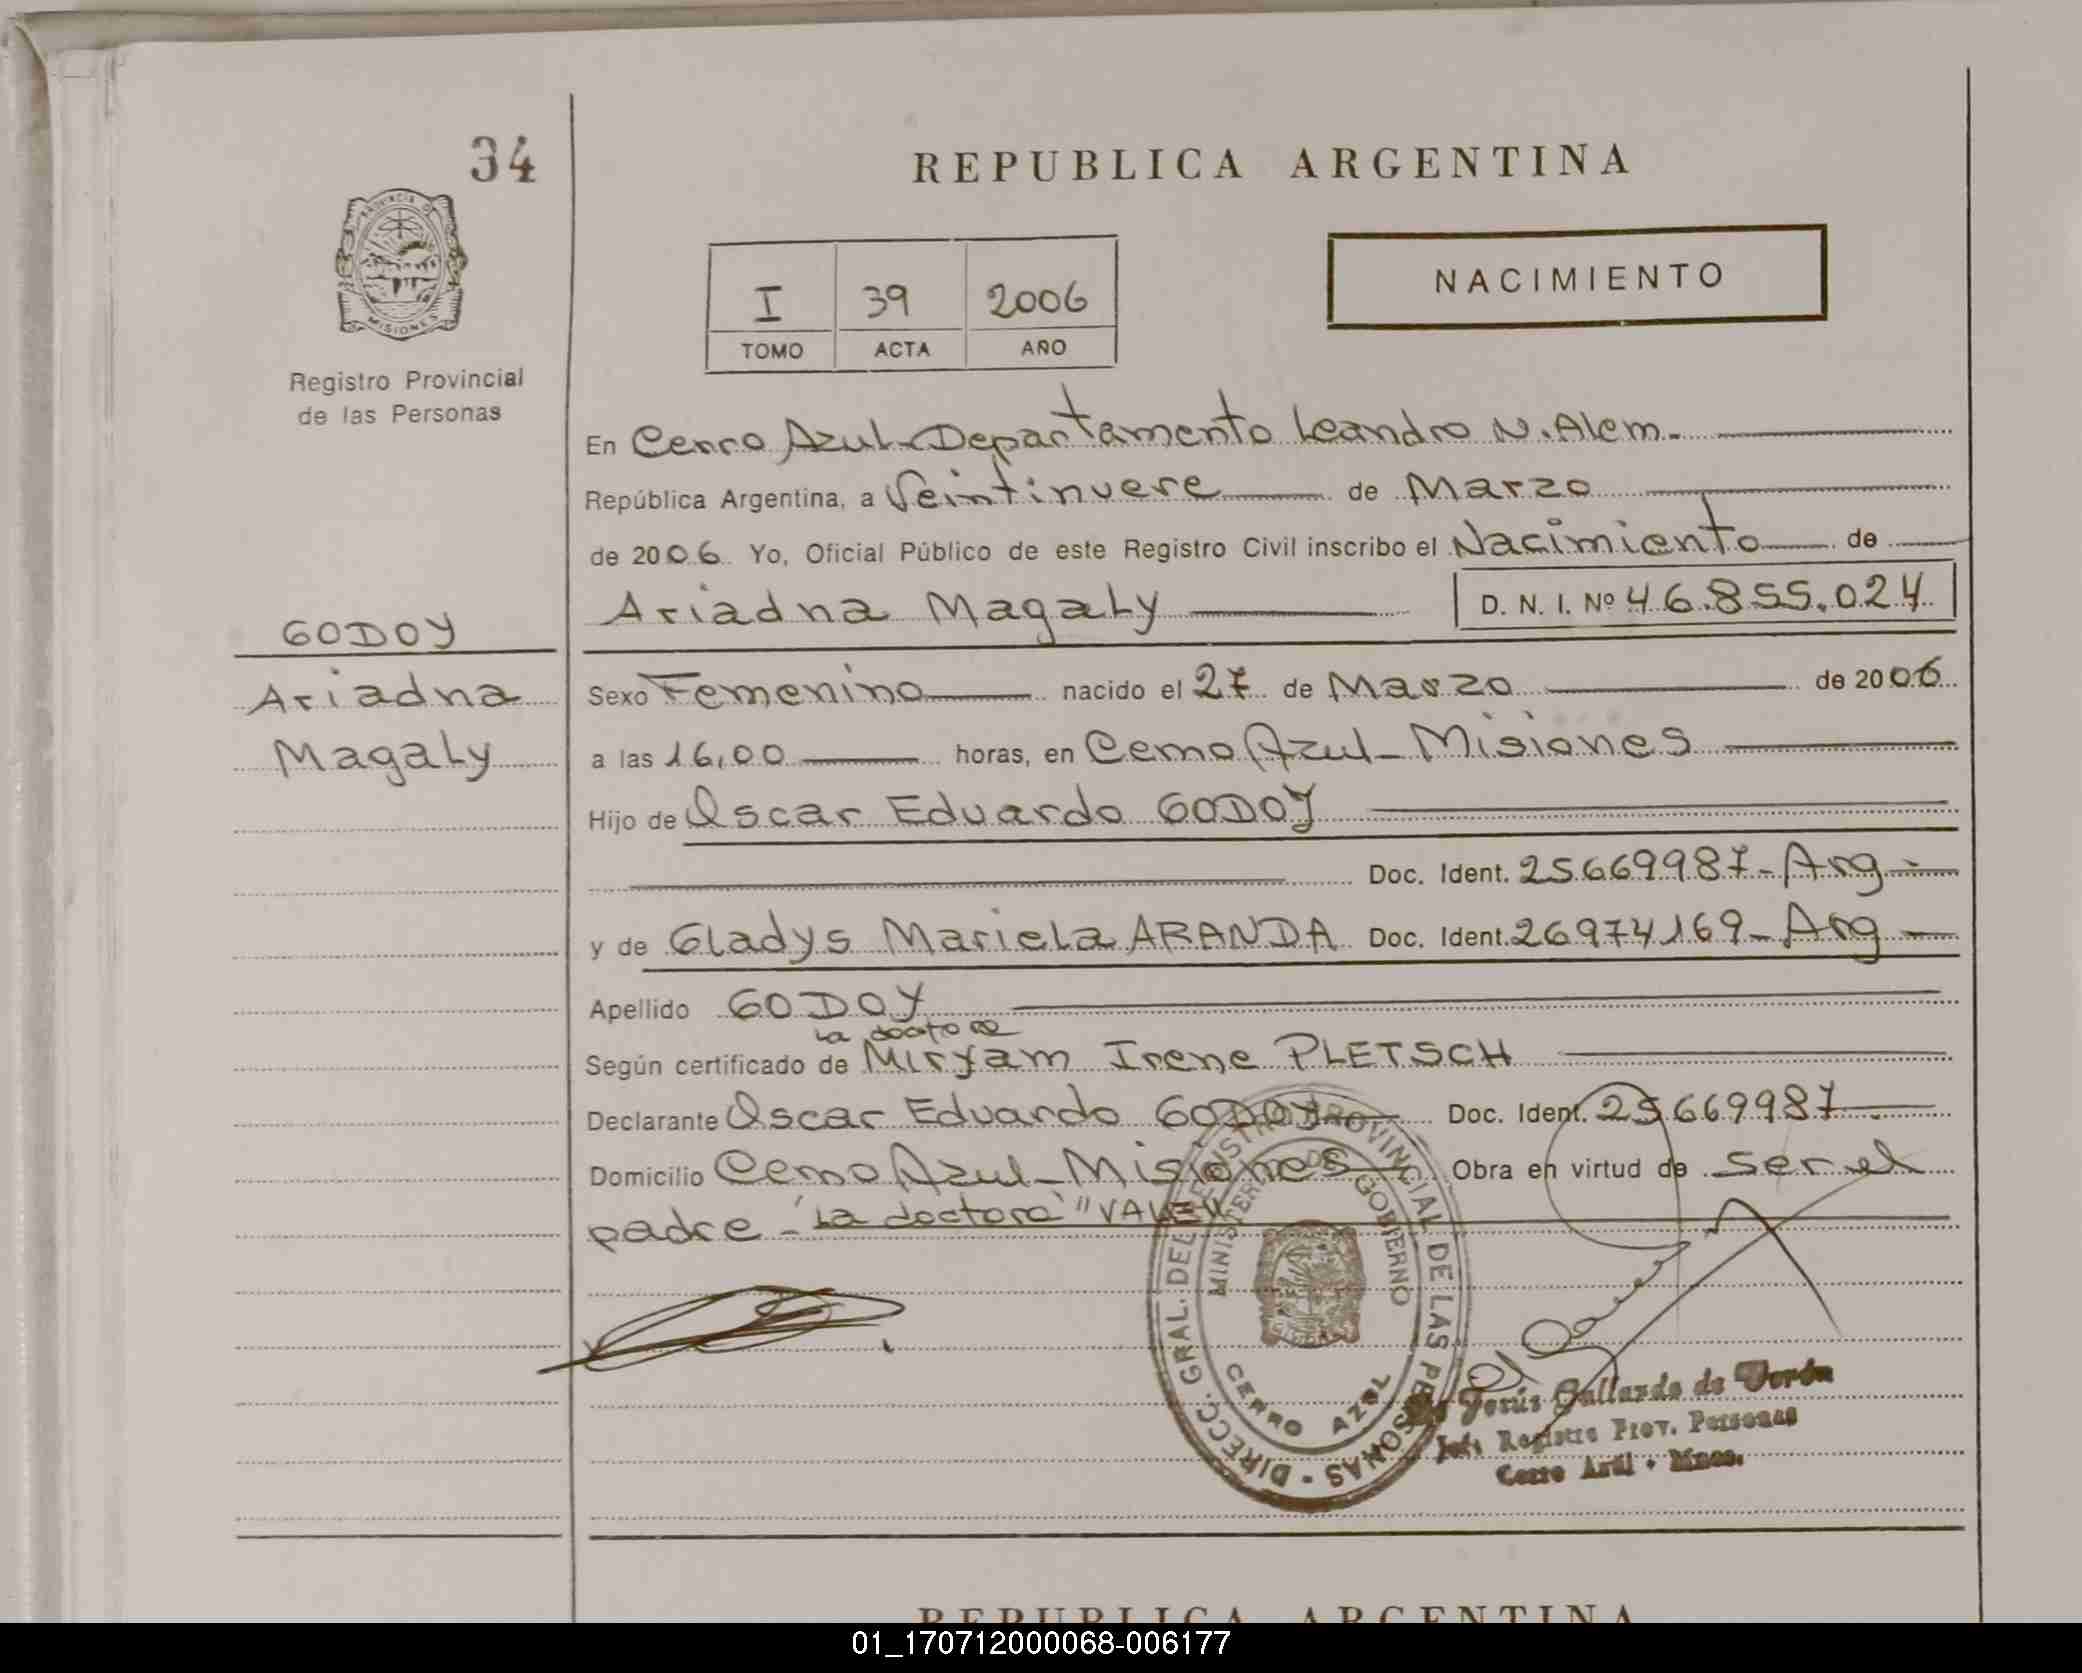 34
REPUBLICA ARGENTINA
PROVINCIA DE
MISIONES
Registro Provincial
de las Personas
NACIMIENTO
I 39 2006
TOMO ACTA AÑO
En Cerro Azul - Departamento Leandro N. Alem.
República Argentina, a Veintinueve de Marzo
de 2006. Yo, Oficial Público de este Registro Civil inscribo el Nacimiento de
Ariadna Magaly D. N. I. Nº 46.855.024
GODOY
Ariadna
Magaly
Sexo Femenino nacido el 27 de Marzo de 2006
a las 16,00 horas, en Cerro Azul - Misiones
Hijo de Oscar Eduardo GODOY
Doc. Ident. 25669987 - Arg -
y de Gladys Mariela ARANDA Doc. Ident. 26974169 - Arg -
Apellido GODOY
la doctora
Según certificado de Miryam Irene PLETSCH
Declarante Oscar Eduardo GODOY Doc. Ident. 25669987
Domicilio Cerro Azul - Misiones Obra en virtud de ser el
padre - "La doctora" "VALE"
DIRECC. GRAL. DEL REGISTRO PROVINCIAL DE LAS PERSONAS
MINISTERIO DE GOBIERNO
CERRO AZUL
Jesús Gallardo de Verón
Jefe Registro Prov. Personas
Cerro Azul - Mnes.
REPUBLICA ARGENTINA
01_170712000068-006177